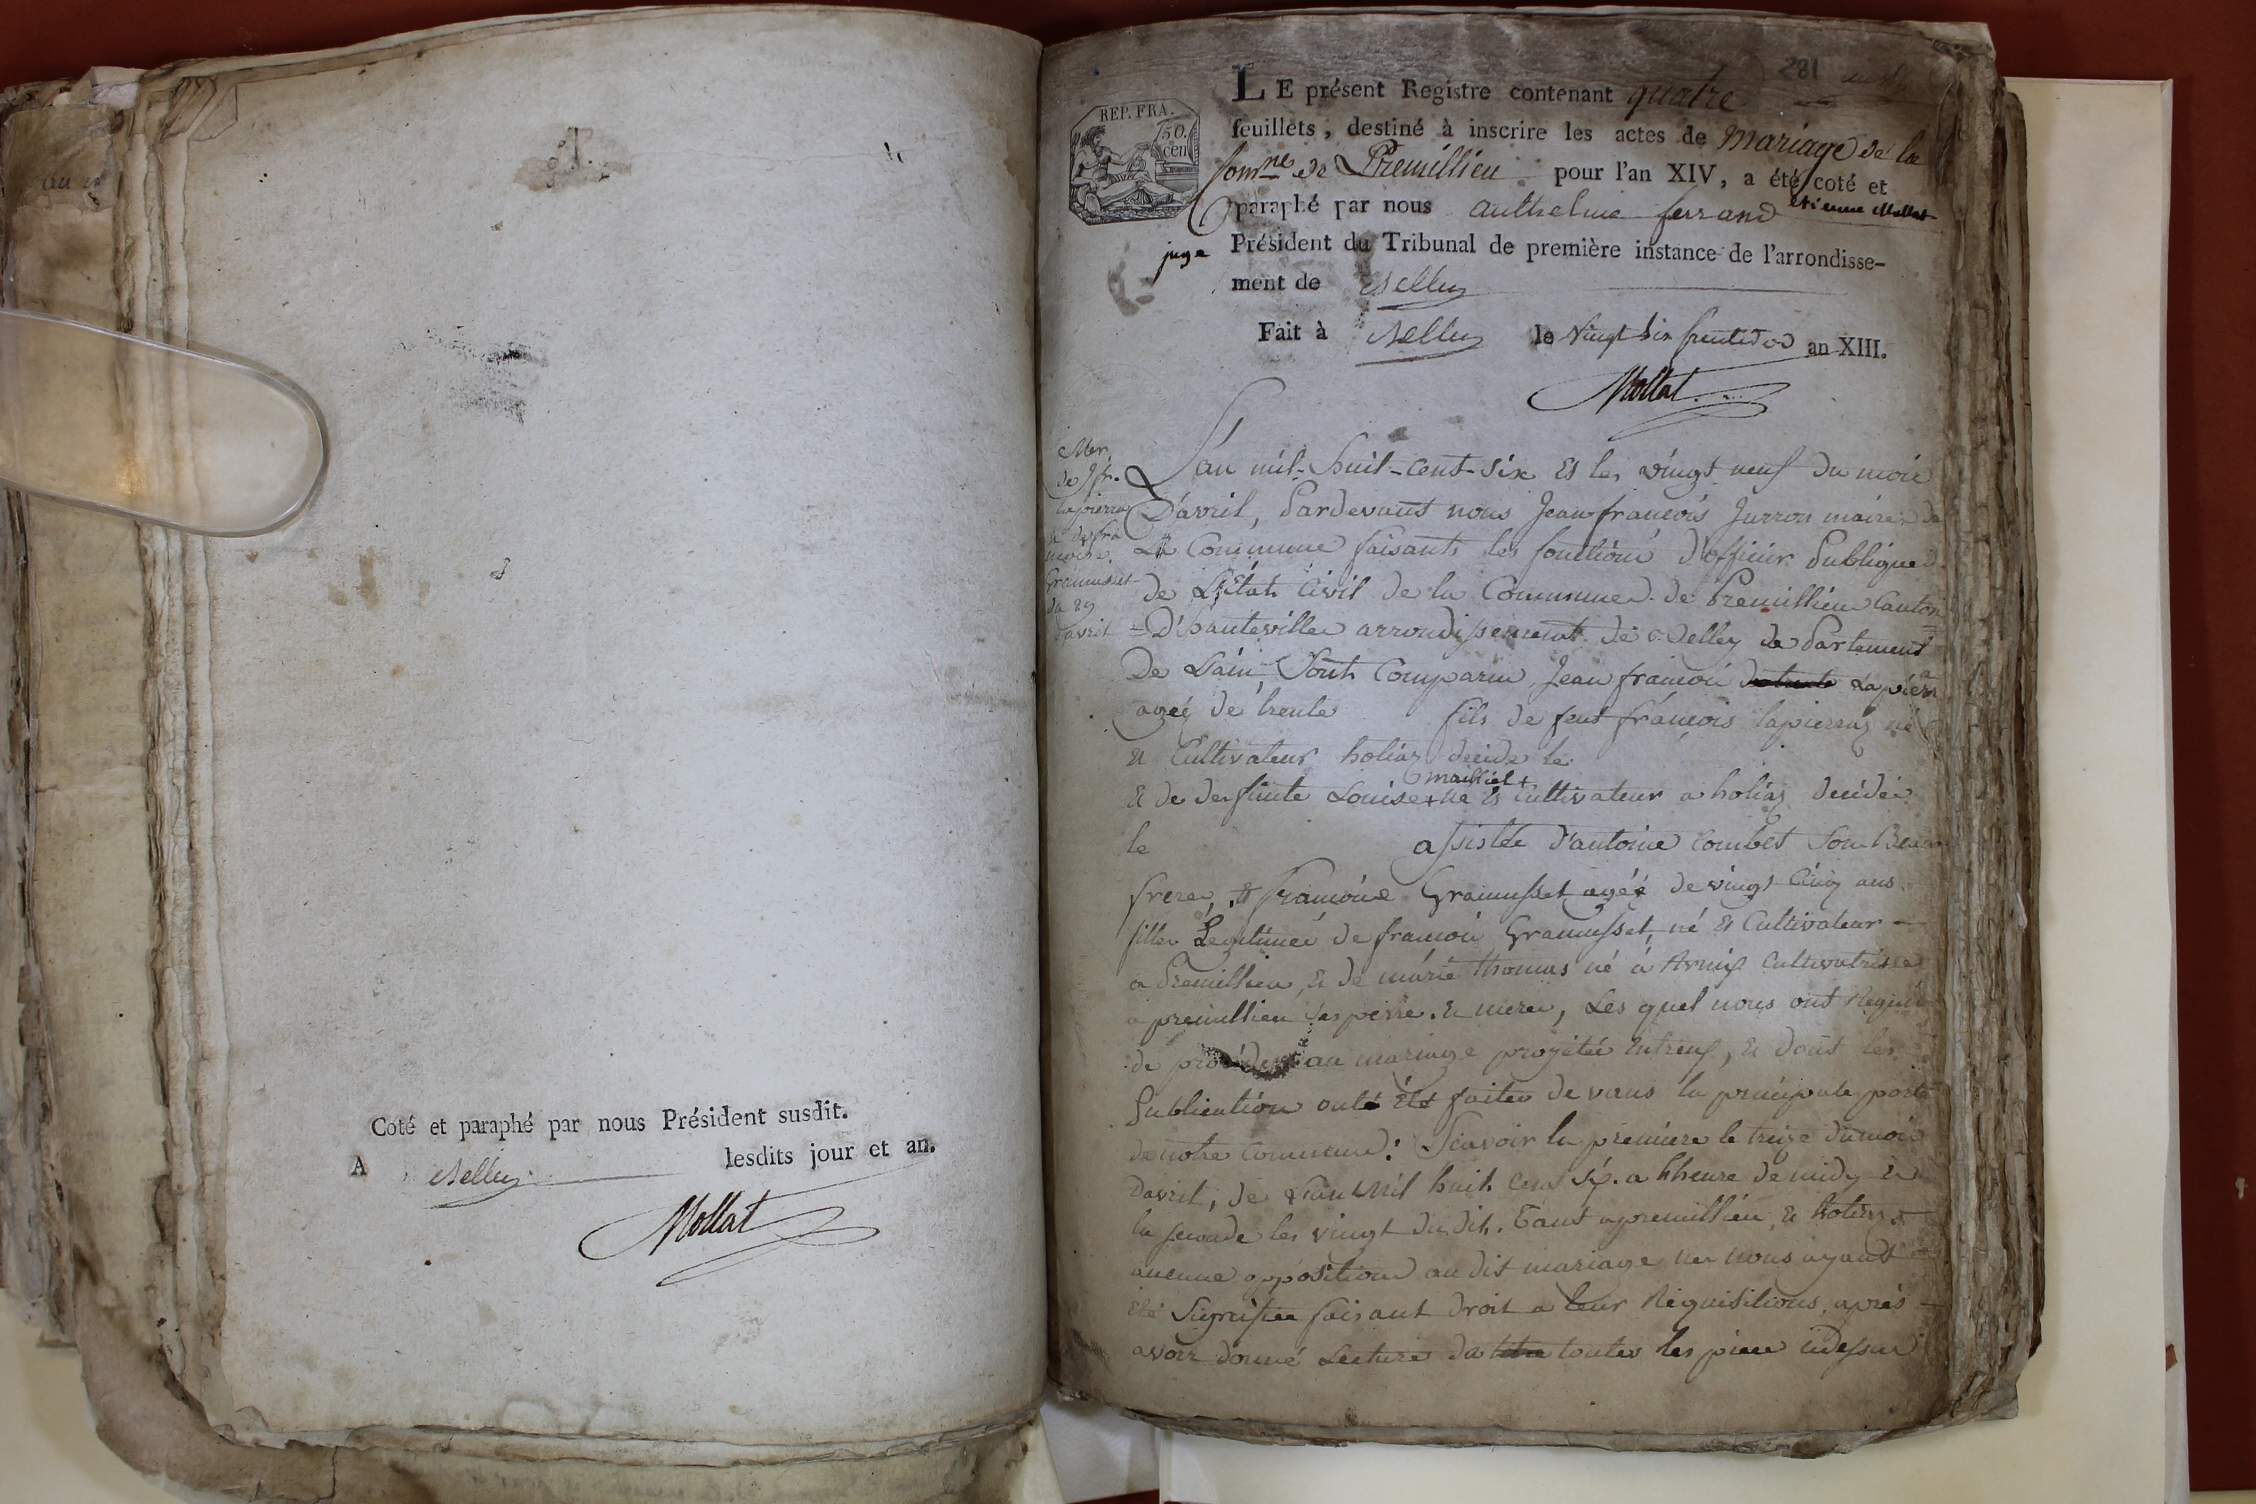 Coté et paraphé par nous Président susdit.
A Belley lesdits jour et an.
Mollat
281
REP. FRA.
50.
cen
LE présent Registre contenant quatre
feuillets, destiné à inscrire les actes de mariage de la
Comne de Premillieu pour l'an XIV, a été coté et
paraphé par nous anthelme ferrand Etienne Mollat
juge Président du Tribunal de première instance de l'arrondisse-
ment de Belley
Fait à Belley le vingt six fructidor an XIII.
Mollat
Mar.
de J fr.
lapierre
françoise
Gramusset
du 29
davril
L'an mil-huit-cent-six et les vingt neuf du mois
D'avril, Pardevant nous Jean françois Jurron maire de
La Commune faisants les fonctions d'officier Publique
de L'Etat Civil de la Commune de Premillieu Canton
D'hauteville arrondissement de Belley de Partement
De Lain, Sont Comparu Jean françoi Lapierre
agéé de trente fils de feut françois lapierraz né
et Cultivateur holiaz decide le
maubliet +
et de derfunte Louise + né et Cultivateur a holiaz decidéé
le assistée d'antoine Combet Son Beau
frere, et françoise Gramusset agéé de vingt Cinq ans
fille Legitimée de françoi Gramusset, né et Cultivateur
a Premillieu, et de marie thomas né à Armix Cultivatrisse
a premillieu ses perre et merer, Les quel nous ont Requi
de procéder au mariage projétéé Entreux, et dont les
Publication onté été faiter de vans la principale porte
de notre Commune: Scavoir la premiere le treize du mois
Davril, de L'an Mil huit Cent Six. a lheure de midy et
la seconde les vingt du dit. Tant apremillieu, et holiaz
aucune opposition au dit mariage ner nous ayant
été Signifiée faisant droit a leur Réquisitions, aprés
avoir donné Lecture da toutes les piece cidessus